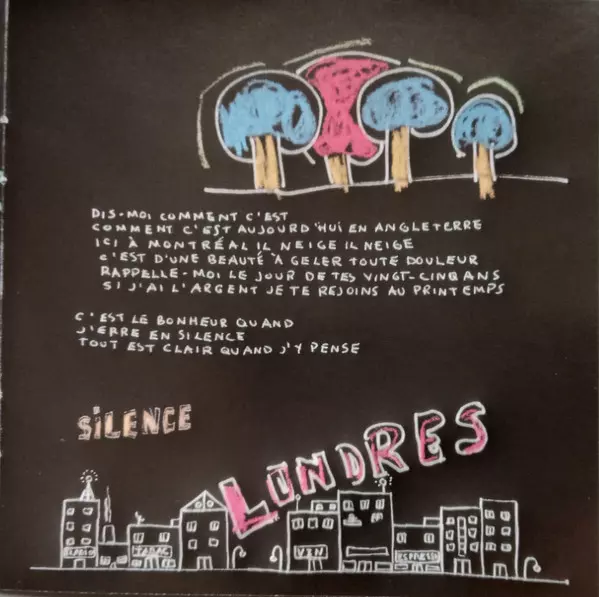 DIS-MOI COMMENT C'EST
COMMENT C'EST AUJOURD'HUI EN ANGLETERRE
ICI À MONTRÉAL IL NEIGE IL NEIGE
C'EST D'UNE BEAUTÉ À GELER TOUTE DOULEUR
RAPPELLE-MOI LE JOUR DE TES VINGT-CINQ ANS
SI J'AI L'ARGENT JE TE REJOINS AU PRINTEMPS
C'EST LE BONHEUR QUAND
J'ERRE EN SILENCE
TOUT EST CLAIR QUAND J'Y PENSE
SILENCE
LONDRES
RADIO
TABAC
VIN
ESPRESSO